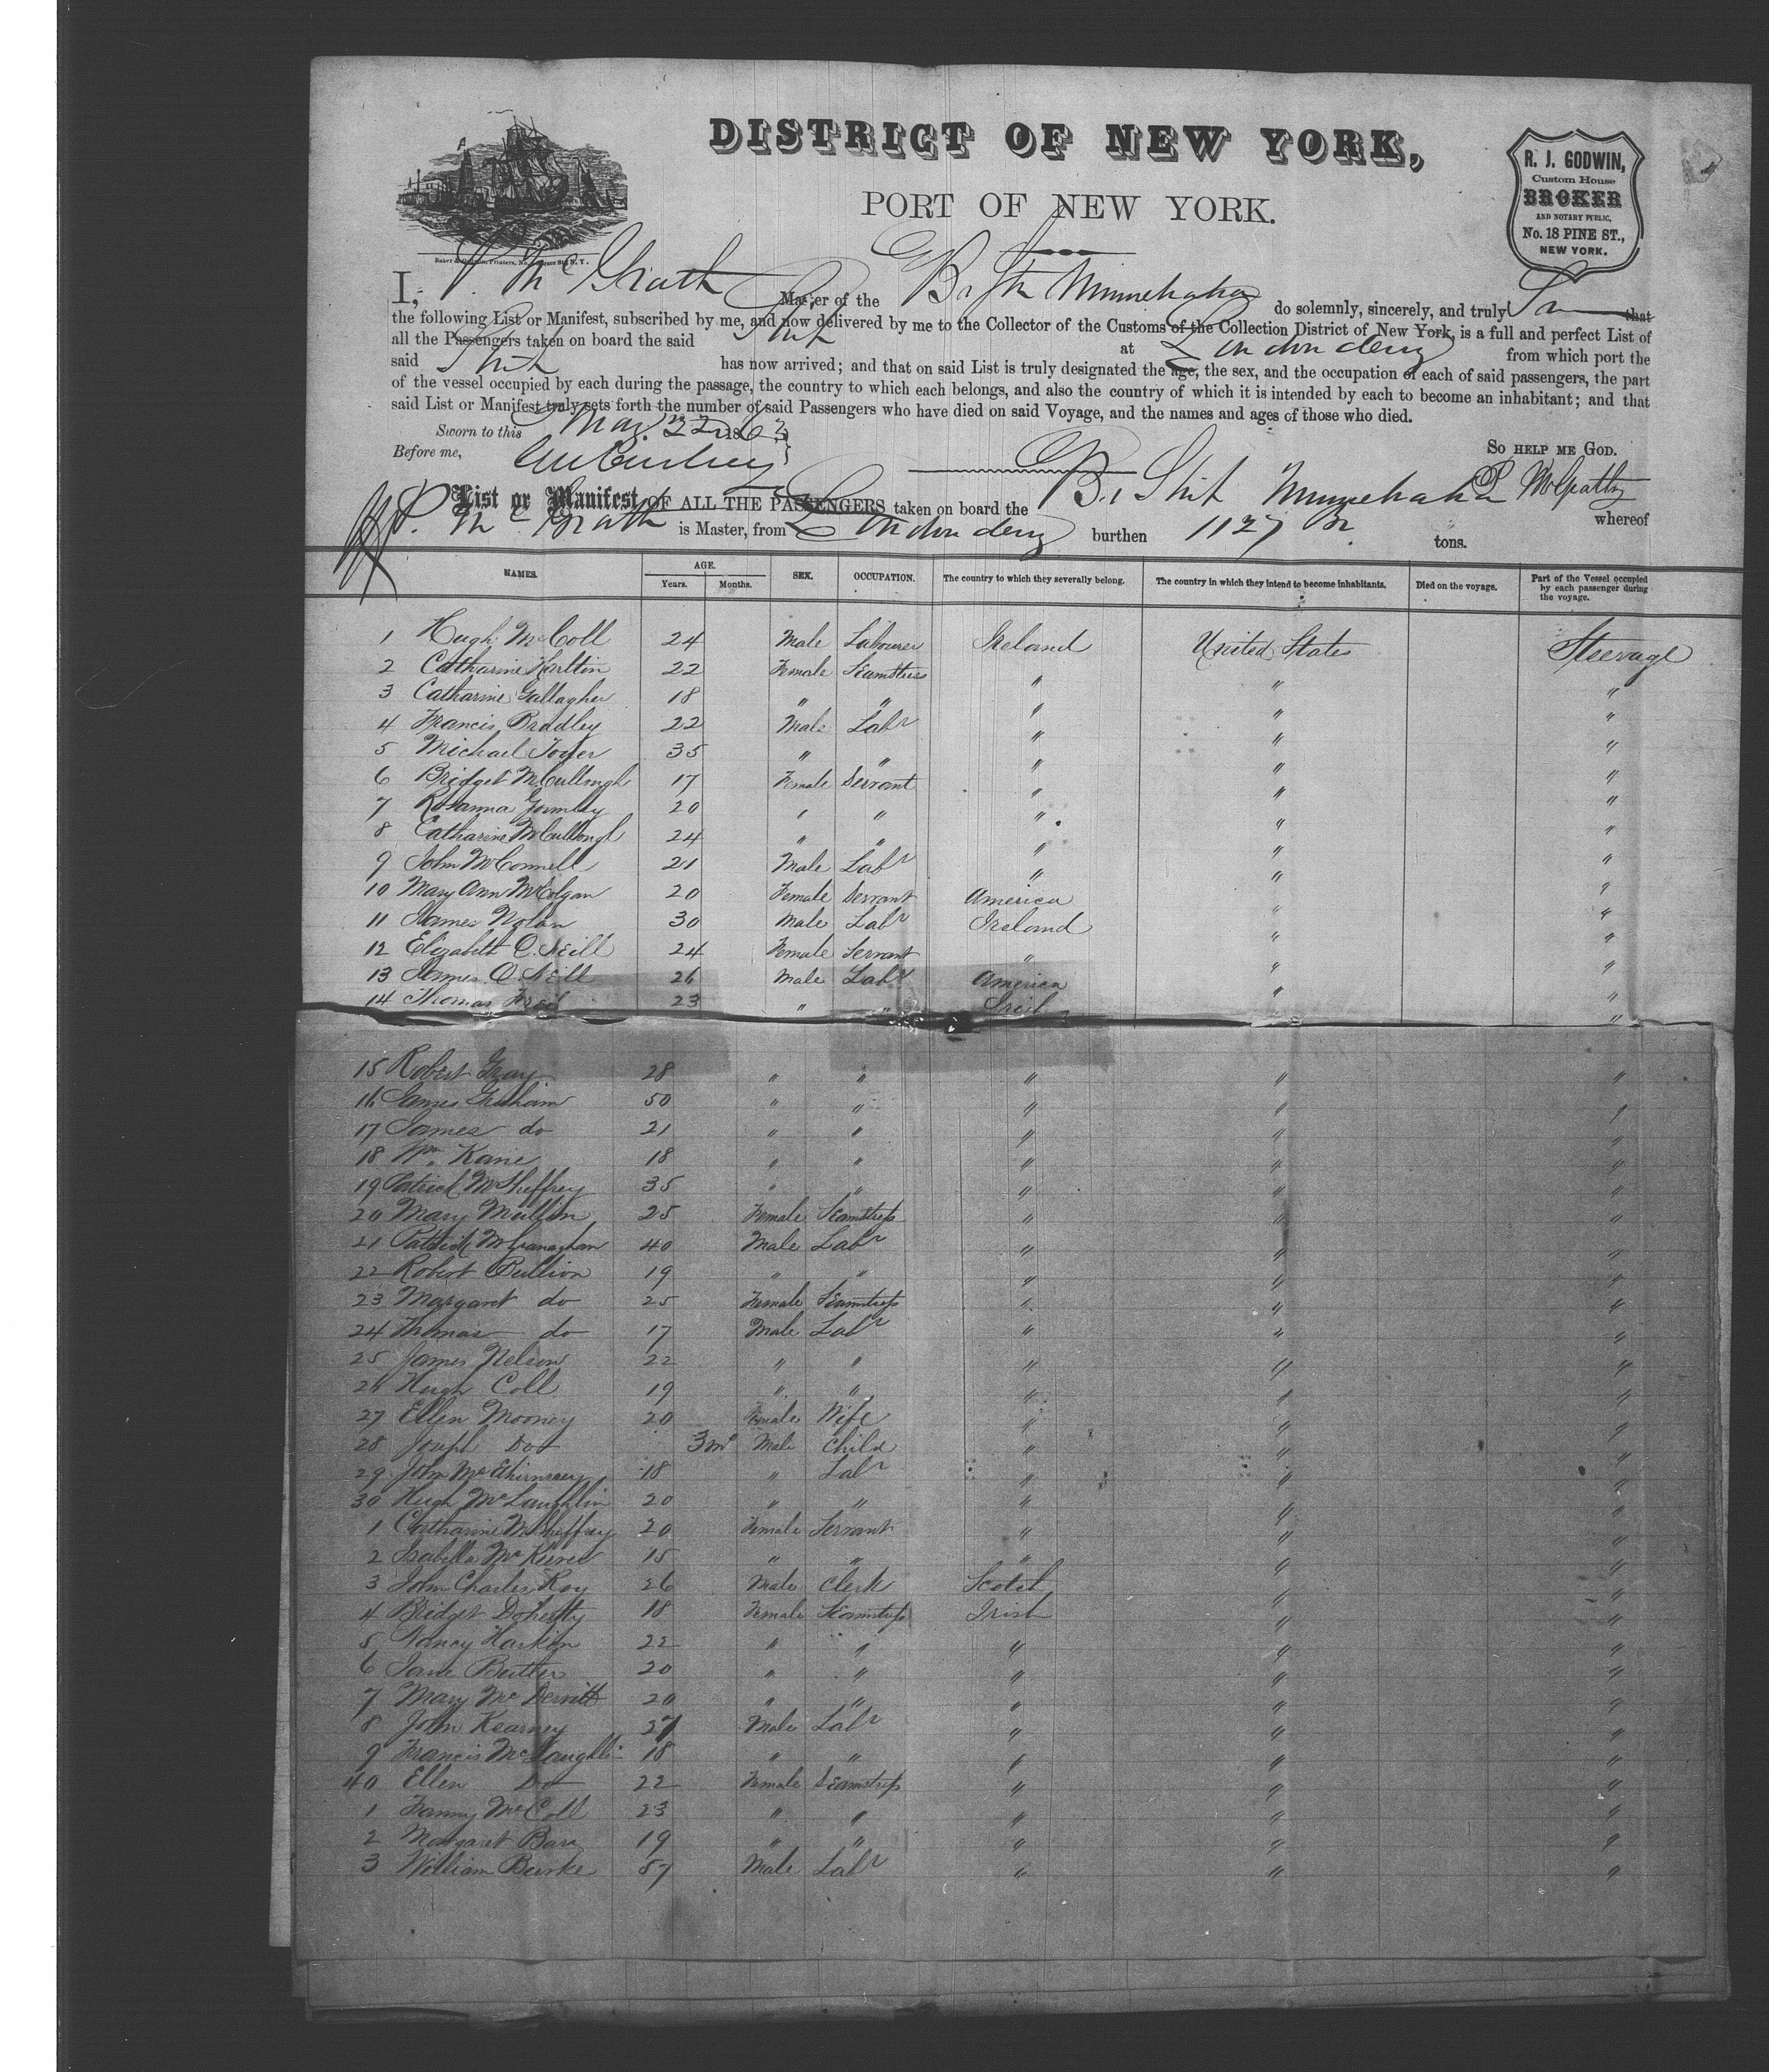 DISTRICT OF NEW YORK,
PORT OF NEW YORK.
R. J. GODWIN,
Custom House
BROKER
AND NOTARY PUBLIC,
No. 18 PINE ST.,
NEW YORK.
I, P. McGrath Master of the Br Ship Minnehaha do solemnly, sincerely, and truly that
the following List or Manifest, subscribed by me, and now delivered by me to the Collector of the Customs of the Collection District of New York, is a full and perfect List of
all the Passengers taken on board the said Ship at Londonderry from which port the
said Ship has now arrived; and that on said List is truly designated the age, the sex, and the occupation of each of said passengers, the part
of the vessel occupied by each during the passage, the country to which each belongs, and also the country of which it is intended by each to become an inhabitant; and that
said List or Manifest truly sets forth the number of said Passengers who have died on said Voyage, and the names and ages of those who died.
Sworn to this May 22nd 1863
So HELP ME GOD.
Before me,
P McGrath
List or Manifest OF ALL THE PASSENGERS taken on board the Br Ship Minnehaha whereof
P. McGrath is Master, from Londonderry burthen 1127 tons.
NAMES. AGE. Years. Months. SEX. OCCUPATION. The country to which they severally belong. The country in which they intend to become inhabitants. Died on the voyage. Part of the Vessel occupied by each passenger during the voyage.
1 Hugh McColl 24 Male Labourer Ireland United States Steerage
2 Catharine Harltin 22 Female Seamstress " " "
3 Catharine Gallagher 18 " " " " "
4 Francis Bradley 22 Male Labr " " "
5 Michael 35 " " " " "
6 Bridget McCullough 17 Female Servant " " "
7 Rosanna Gormley 20 " " " " "
8 Catharine McCullough 24 " " " " "
9 John McConnell 21 Male Labr " " "
10 Mary Ann McColgan 20 Female Servant America " "
11 James Nolan 30 Male Labr Ireland " "
12 Elizabeth O.Neill 24 Female Servant " " "
13 James O.Neill 26 Male Labr America " "
14 Thomas Friel 23 " " Irel " "
15 Robert Gray 28 " " " " "
16 James Graham 50 " " " " "
17 James do 21 " " " " "
18 Wm. Kane 18 " " " " "
19 Patrick McSheffrey 35 " " " " "
20 Mary Mullin 25 Female Seamstress " " "
21 Patrick McGranaghan 40 Male Labr " " "
22 Robert Pullion 19 " " " " "
23 Margaret do 25 Female Seamstress " " "
24 Thomas do 17 Male Labr " " "
25 James Nelson 22 " " " " "
26 Hugh Coll 19 " " " " "
27 Ellen Mooney 20 Female Wife " " "
28 Joseph Do 3ms Male Child " " "
29 John 18 " Labr " " "
30 Hugh McLaughlin 20 " " " " "
1 Catharine McSheffrey 20 Female Servant " " "
2 Isabella 15 " " " " "
3 John Charles Roy 26 Male Clerk Scotch " "
4 Bridget Doherty 18 Female Seamstress Irish " "
5 Nancy Harkin 22 " " " " "
6 Jane Butler 20 " " " " "
7 Mary McDermitt 20 " " " " "
8 John Kearney 27 Male Labr " " "
9 Francis McLaughlin 18 " " " " "
40 Ellen Do 22 Female Seamstress " " "
1 Fanny McColl 23 " " " " "
2 Margaret Barr 19 " " " " "
3 William Burke 57 Male Labr " " "